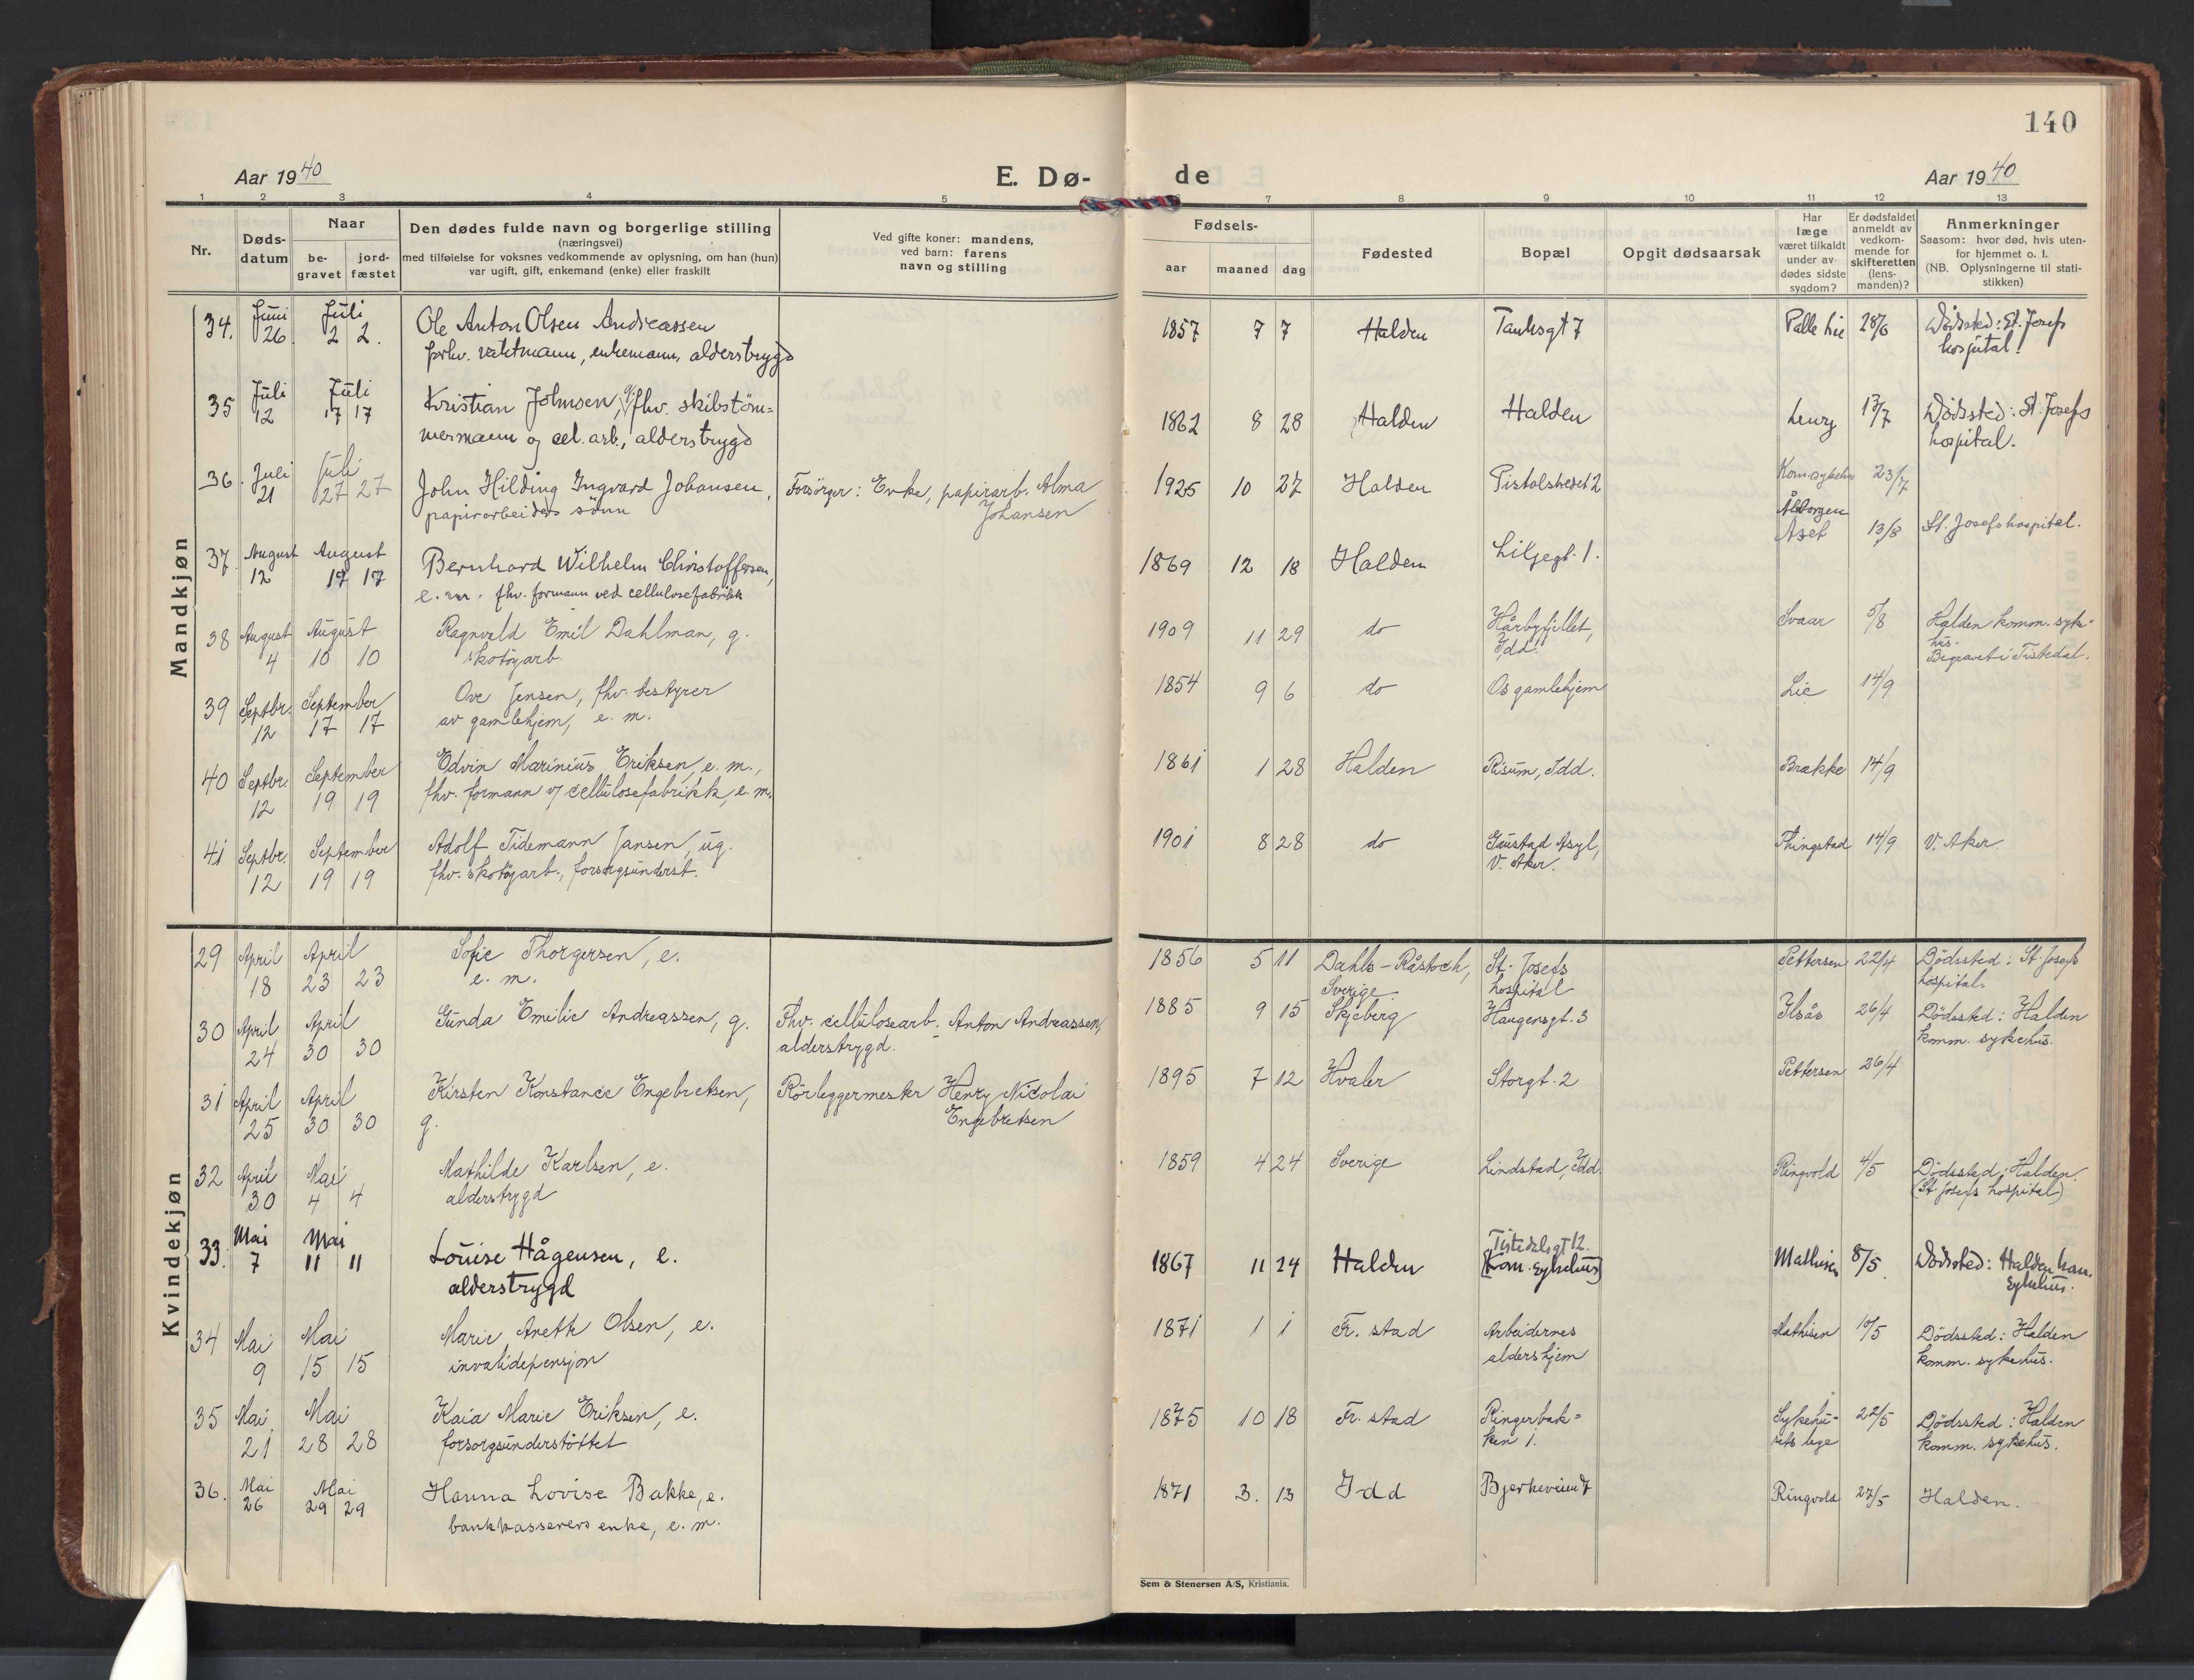 140
Aar 1940
E. Dø-
de
Aar 1940
1 2 3 4 5 7 8 9 10 11 12 13
Nr.
Døds-
datum
Naar
be-
gravet
jord-
fæstet
Den dødes fulde navn og borgerlige stilling
(næringsvei)
med tilføielse for voksnes vedkommende av oplysning, om han (hun)
var ugift, gift, enkemand (enke) eller fraskilt
Ved gifte koner: mandens,
ved barn: farens
navn og stilling
Fødsels-
aar maaned dag
Fødested
Bopæl
Opgit dødsaarsak
Har
læge
været tilkaldt
under av-
dødes sidste
sygdom?
Er dødsfaldet
anmeldt av
vedkom-
mende for
skifteretten
(lens-
manden)?
Anmerkninger
Saasom: hvor død, hvis uten-
for hjemmet o. l.
(NB. Oplysningerne til stati-
stikken)
Mandkjøn
34. Juni 26. Juli 2 2.
Ole Anton Olsen Andreassen
forhv. vaktmann, enkemann, alderstrygd
1857 7 7 Halden Tanksgt 7 Palle Lie 28/6 Dödssted: St. Josefs
hospital.
35 Juli 12 Juli 17 17
Kristian Johnsen, g. fhv. skibstöm=
mermann og cel. arb., alderstrygd
1862 8 28 Halden Halden 13/7 Dödssted: St. Josefs
hospital.
36. Juli 21 Juli 27 27
John Hilding Ingvard Johansen,
papirarbeiders sönn
Forsörger: Enke, papirarb. Alma
Johansen
1925 10 27 Halden Pistolstredet 2 Kom. sykehus 23/7
37. August 12 August 17 17
Bernhard Wilhelm Christoffersen,
e. m. fhv. formann ved cellulosefabrikk
1869 12 18 Halden Liljegt. 1. 13/8 St. Josefs hospital.
38 August 4 August 10 10
Ragnvald Emil Dahlman, g.
skotöyarb.
1909 11 29 do Hårbyfjellet,
Idd. Svaar 5/8 Halden komm. syke=
hus.
Begravet i Tistedal.
39 Septbr. 12 September 17 17
Ove Jensen, fhv. bestyrer
av gamlehjem, e. m.
1854 9 6 do Os gamlehjem Lie 14/9
40 Septbr. 12 September 19 19
Edvin Marinius Eriksen, e. m.,
fhv. formann v/ cellulosefabrikk, e. m.
1861 1 28 Halden Risum, Idd. Brække 14/9
41 Septbr. 12 September 19 19
Adolf Tidemann Jansen, ug.
fhv. skotöyarb., forsorgsunderst.
1901 8 28 do Gaustad Asyl,
V. Aker. Thingstad 14/9 V. Aker.
Kvindekjøn
29 April 18 April 23 23
Sofie Thorgersen, e.
e. m.
1856 5 11 Dahls-Råstock,
Sverige St. Josefs
hospital Pettersen 22/4 Dödssted: St. Josefs
hospital.
30 April 24 April 30 30
Gunda Emilie Andreassen, g.
Fhv. cellulosearb. Anton Andreassen,
alderstrygd.
1885 9 15 Skjeberg Haugensgt. 3 Ilsås 26/4 Dödssted: Halden
komm. sykehus.
31 April 25 April 30 30
Kirsten Konstance Engebretsen,
g.
Rörleggermester Henry Nicolai
Engebretsen
1895 7 12 Hvaler Storgt. 2 Pettersen 26/4
32 April 30 Mai 4 4
Mathilde Karlsen, e.
alderstrygd
1859 4 24 Sverige Lindstad, Idd. Ringvold 4/5 Dödssted: Halden.
(St. Josefs hospital)
33. Mai 7 Mai 11 11
Louise Hågensen, e.
alderstrygd
1867 11 24 Halden Tistedalsgt 12.
(Kom. Sykehus) Mathisen 8/5. Dödssted: Halden kom.
Sykehus.
34 Mai 9 Mai 15 15
Marie Aneth Olsen, e.
invalidepensjon
1871 1 1 Fr. stad Arbeidernes
aldershjem Mathisen 10/5 Dödssted: Halden
komm. sykehus.
35 Mai 21 Mai 28 28
Kaia Marie Eriksen, e.
forsorgsunderstöttet
1875 10 18 Fr. stad Ringerbak=
ken 1. Sykehu-
sets lege 22/5 Dödssted: Halden
komm. sykehus.
36. Mai 26 Mai 29 29
Hanna Lovise Bakke, e.
bankkasserers enke, e. m.
1871 3. 13 Idd Bjerkeveien 7 Ringvold 27/5 Halden.
Sem & Stenersen A/S, Kristiania.